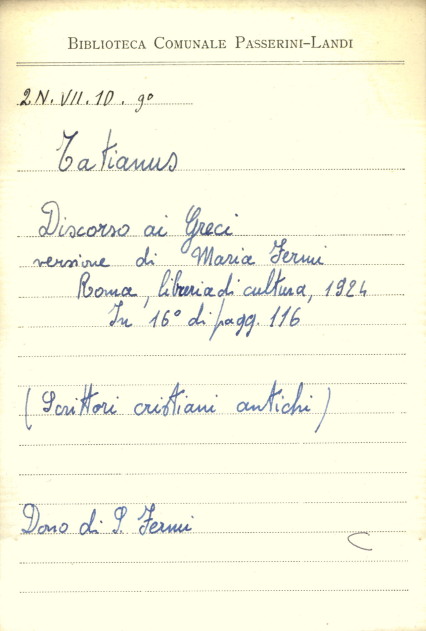 BIBLIOTECA COMUNALE PASSERINI-LANDI
2N. VII. 10. 9º
Tatianus
Discorso ai Greci
versione di Maria Fermi
Roma, libreria di cultura, 1924
In 16º di pagg. 116
(Scrittori cristiani antichi)
Dono di S. Fermi